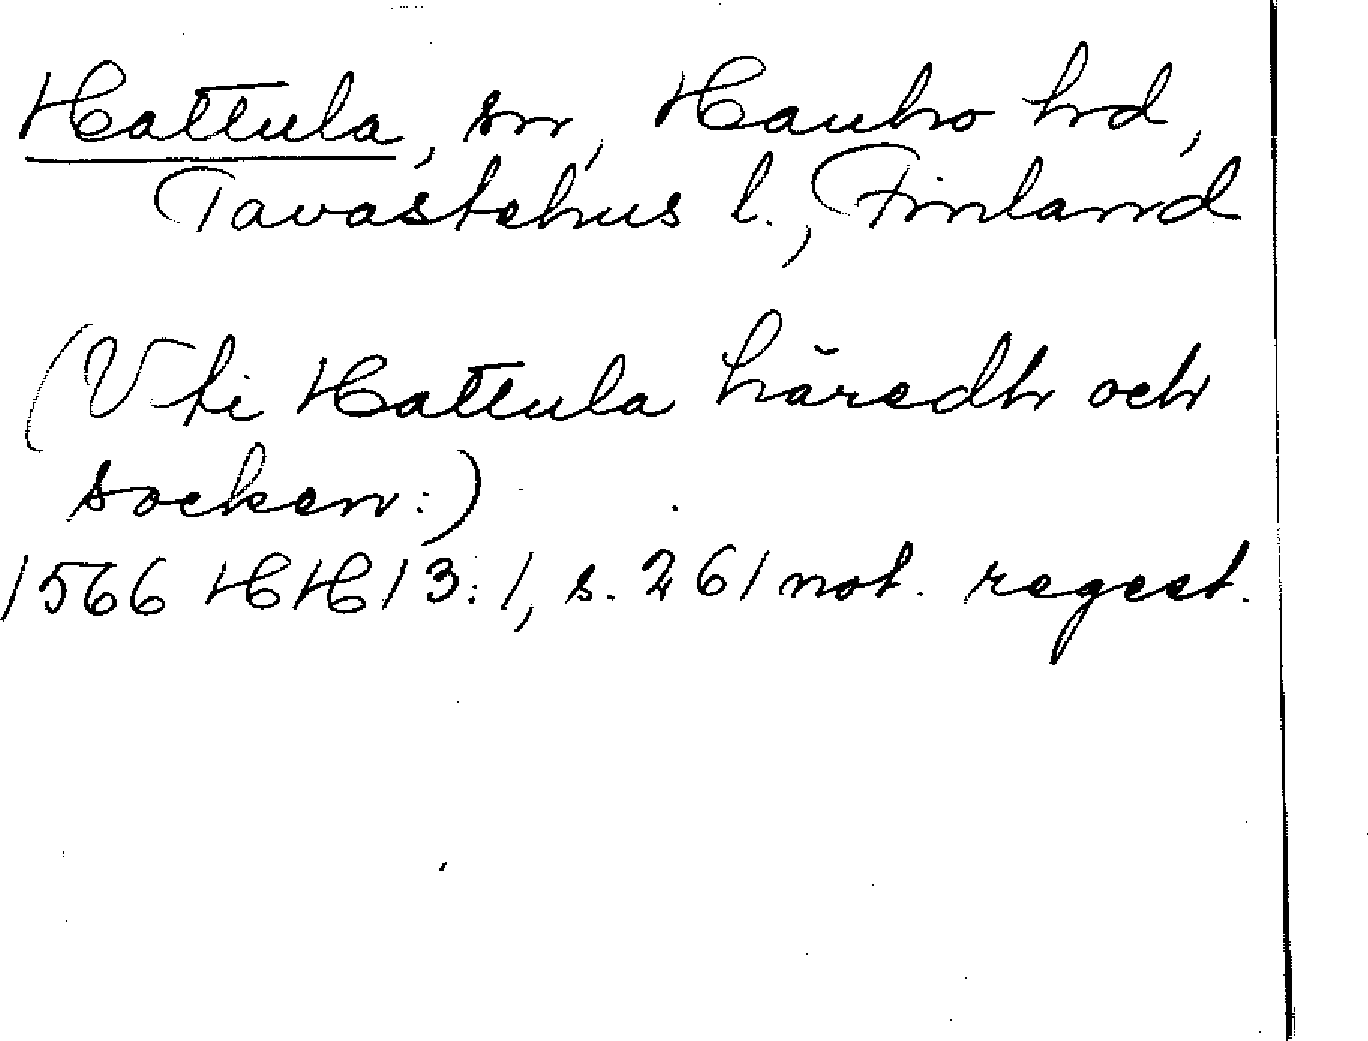 Hattula, sn, Hauho hd,
Tavastehus l., Finland
(Vti Hattula häredh och
socken:)
1566 HH 13:1, s. 261 not. regest.